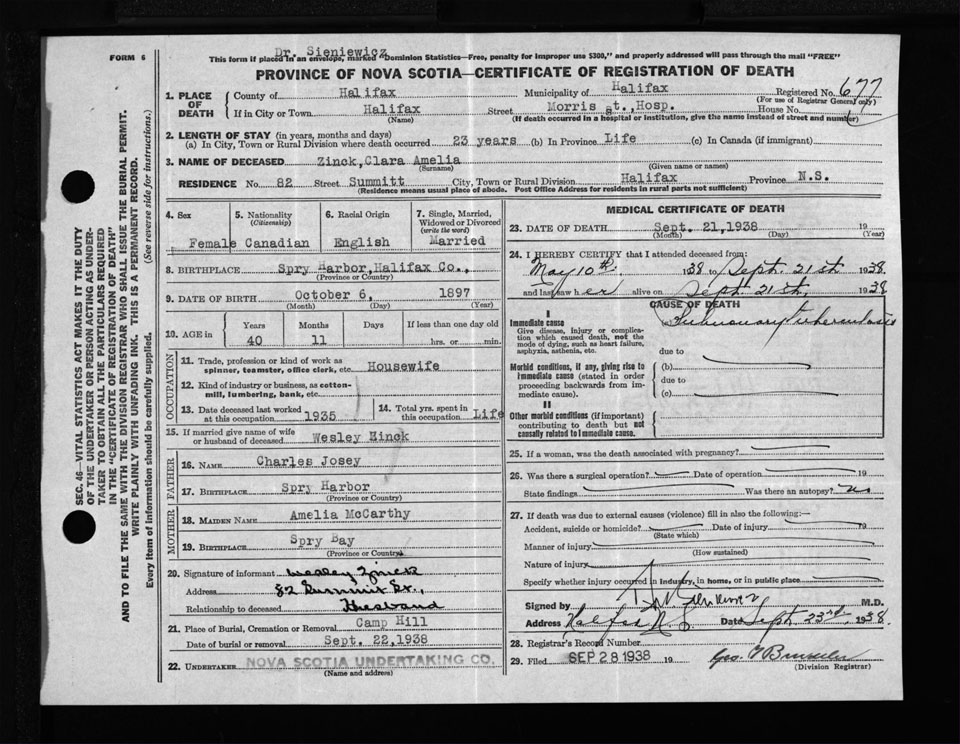 FORM 6
Dr. Sieniewicz
This form if placed in an envelope, marked "Dominion Statistics—Free, penalty for improper use $300," and properly addressed will pass through the mail "FREE"
PROVINCE OF NOVA SCOTIA—CERTIFICATE OF REGISTRATION OF DEATH
1. PLACE OF DEATH
County of Halifax Municipality of Halifax Registered No. 677
(For use of Registrar General only)
If in City or Town Halifax Street Morris st., Hosp. House No.
(Name) (If death occurred in a hospital or institution, give the name instead of street and number)
2. LENGTH OF STAY (in years, months and days)
(a) In City, Town or Rural Division where death occurred 23 years (b) In Province Life (c) In Canada (if immigrant)
3. NAME OF DECEASED Zinck, Clara Amelia
(Surname) (Given name or names)
RESIDENCE No. 82 Street Summitt City, Town or Rural Division Halifax Province N.S.
(Residence means usual place of abode. Post Office Address for residents in rural parts not sufficient)
4. Sex
Female
5. Nationality
(Citizenship)
Canadian
6. Racial Origin
English
7. Single, Married, Widowed or Divorced
(write the word)
Married
8. BIRTHPLACE Spry Harbor, Halifax Co.,
(Province or Country)
9. DATE OF BIRTH October 6, 1897
(Month) (Day) (Year)
10. AGE in
Years Months Days If less than one day old
40 11 hrs. or min.
OCCUPATION
11. Trade, profession or kind of work as spinner, teamster, office clerk, etc. Housewife
12. Kind of industry or business, as cotton-mill, lumbering, bank, etc.
13. Date deceased last worked at this occupation 1935
14. Total yrs. spent in this occupation Life
15. If married give name of wife or husband of deceased Wesley Zinck
FATHER
16. NAME Charles Josey
17. BIRTHPLACE Spry Harbor
(Province or Country)
MOTHER
18. MAIDEN NAME Amelia McCarthy
19. BIRTHPLACE Spry Bay
(Province or Country)
20. Signature of informant Wesley Zinck
Address 82 Summit St.,
Relationship to deceased Husband
21. Place of Burial, Cremation or Removal Camp Hill
Date of burial or removal Sept. 22, 1938
22. UNDERTAKER NOVA SCOTIA UNDERTAKING CO.
(Name and address)
MEDICAL CERTIFICATE OF DEATH
23. DATE OF DEATH Sept. 21, 1938 19
(Month) (Day) (Year)
24. I HEREBY CERTIFY that I attended deceased from:
May 10th 1938 to Sept. 21st, 1938
and last saw her alive on Sept. 21st, 1938
CAUSE OF DEATH
I
Immediate cause Pulmonary tuberculosis
Give disease, injury or complication which caused death, not the mode of dying, such as heart failure, asphyxia, asthenia, etc.
due to
Morbid conditions, if any, giving rise to immediate cause (stated in order proceeding backwards from immediate cause).
(b)
due to
(c)
II
Other morbid conditions (if important) contributing to death but not causally related to immediate cause.
25. If a woman, was the death associated with pregnancy?
26. Was there a surgical operation? Date of operation 19
State findings Was there an autopsy? no
27. If death was due to external causes (violence) fill in also the following:—
Accident, suicide or homicide? Date of injury 19
(State which)
Manner of injury
(How sustained)
Nature of injury
Specify whether injury occurred in industry, in home, or in public place
Signed by M.D.
Address Halifax N.S. Date Sept. 23rd 1938.
28. Registrar's Record Number
29. Filed SEP 28 1938 19
(Division Registrar)
SEC. 46—VITAL STATISTICS ACT MAKES IT THE DUTY
OF THE UNDERTAKER OR PERSON ACTING AS UNDER-
TAKER TO OBTAIN ALL THE PARTICULARS REQUIRED
IN THE "CERTIFICATE OF REGISTRATION OF DEATH"
AND TO FILE THE SAME WITH THE DIVISION REGISTRAR WHO SHALL ISSUE THE BURIAL PERMIT.
WRITE PLAINLY WITH UNFADING INK. THIS IS A PERMANENT RECORD.
Every item of information should be carefully supplied. (See reverse side for instructions.)